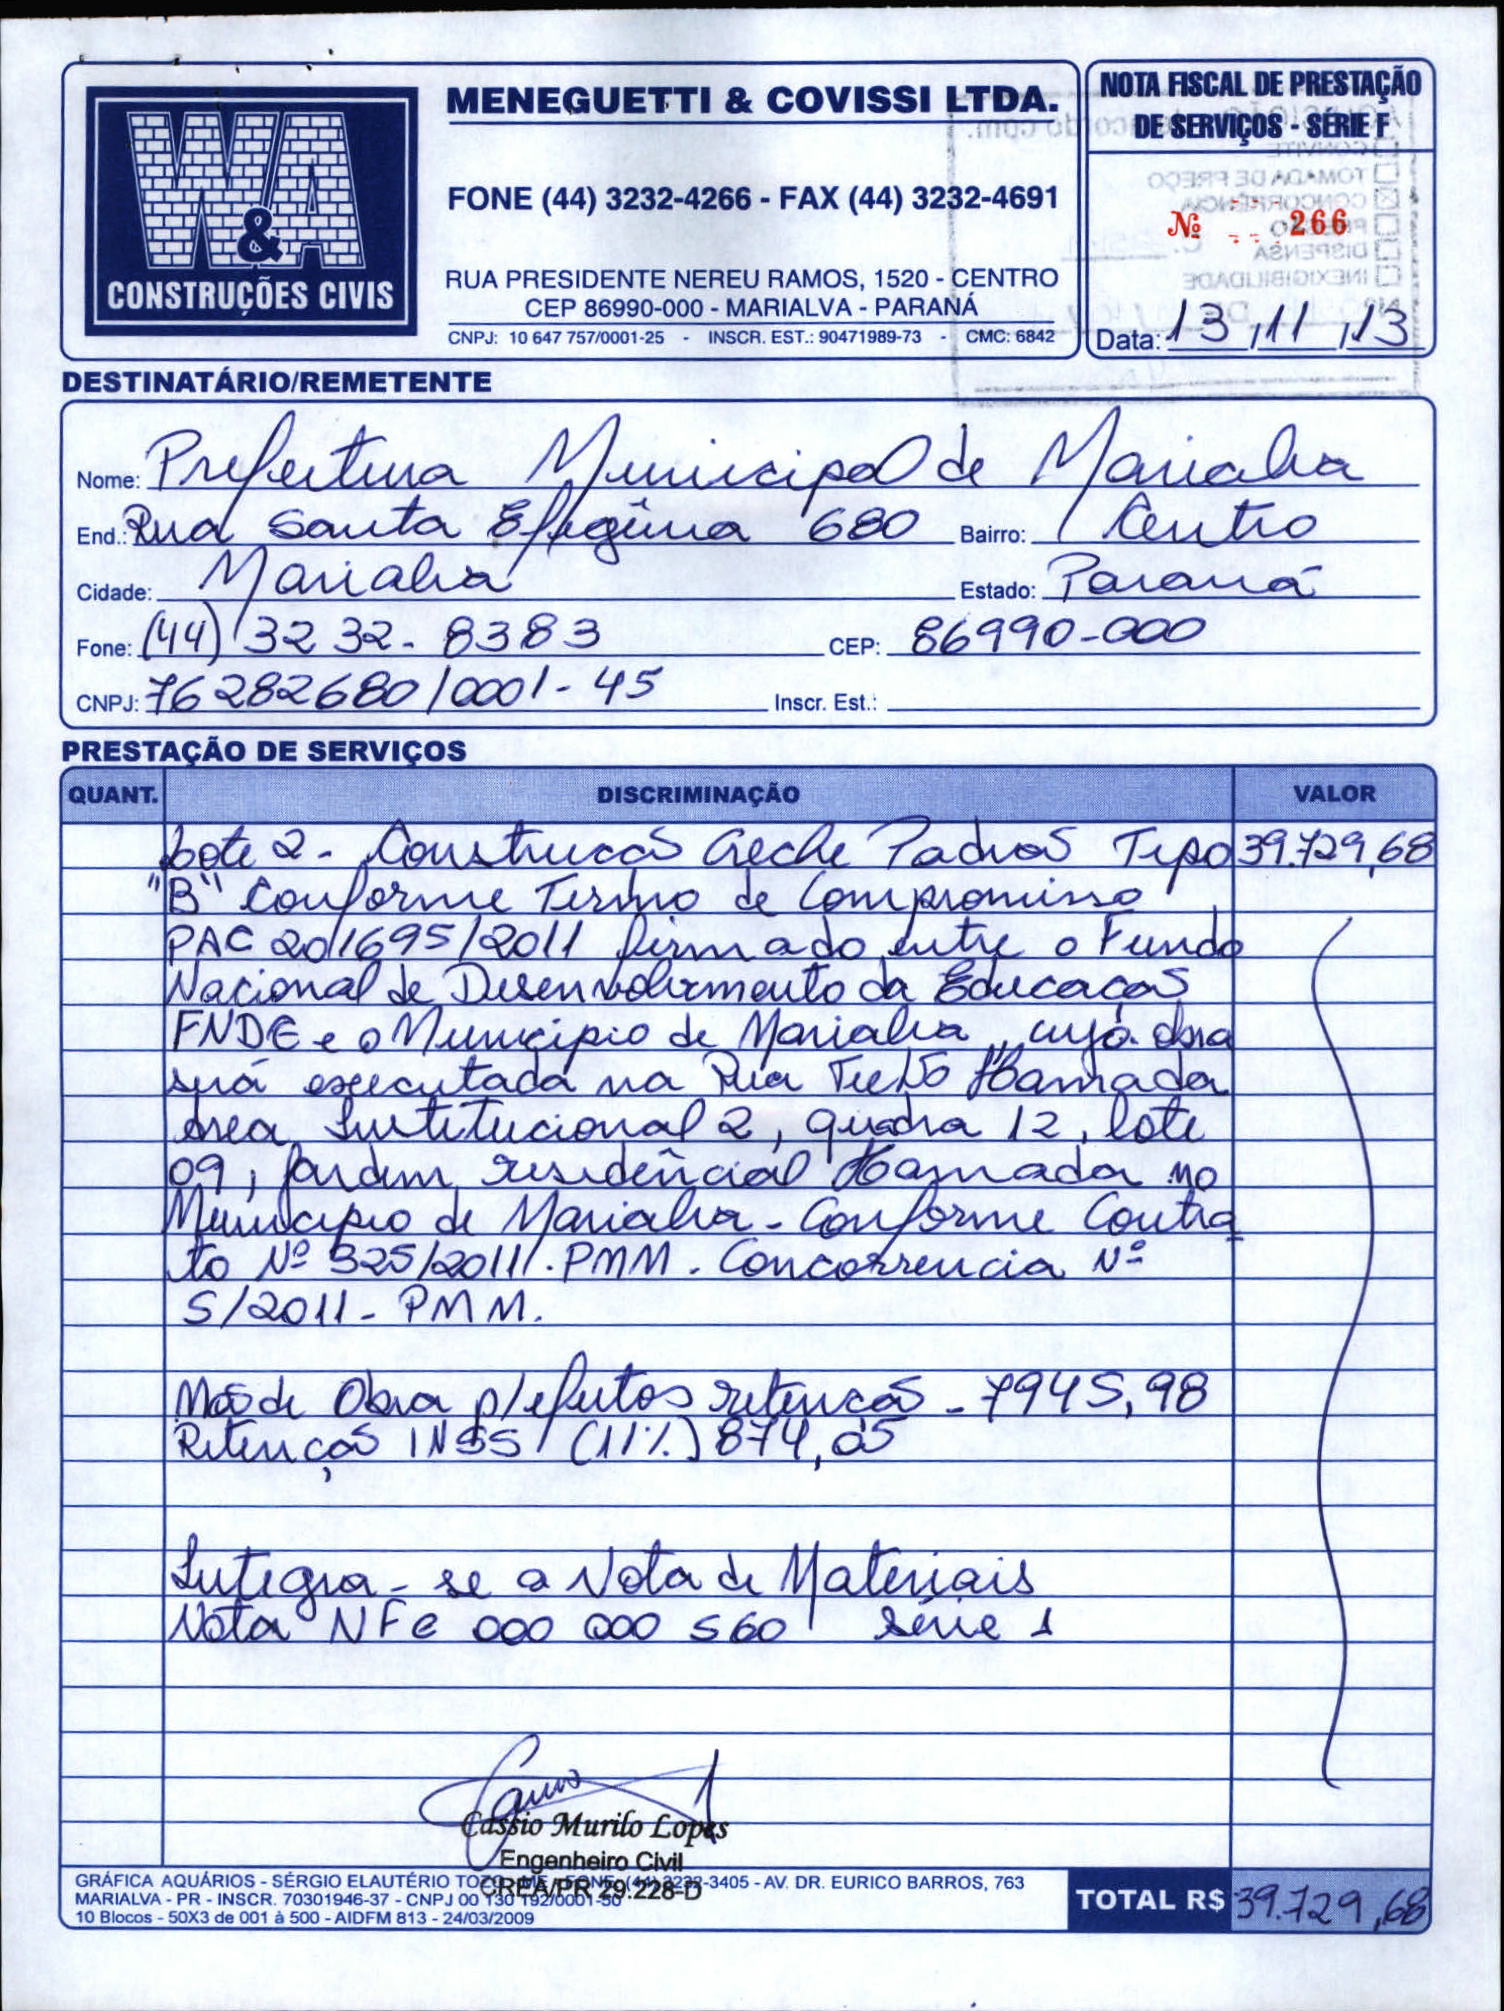 W&A
CONSTRUÇÕES CIVIS
MENEGUETTI & COVISSI LTDA.
FONE (44) 3232-4266 - FAX (44) 3232-4691
RUA PRESIDENTE NEREU RAMOS, 1520 - CENTRO
CEP 86990-000 - MARIALVA - PARANÁ
CNPJ: 10 647 757/0001-25 - INSCR. EST.: 90471989-73 - CMC: 6842
NOTA FISCAL DE PRESTAÇÃO
DE SERVIÇOS - SÉRIE F
Nº 266
Data: 13/11/13
TOMADA DE PREÇO
CONCORRÊNCIA
DISPENSA
INEXIGIBILIDADE
DESTINATÁRIO/REMETENTE
Nome: Prefeitura Municipal de Marialva
End.: Rua Santa Efigênia 680 Bairro: Centro
Cidade: Marialva Estado: Paraná
Fone: (44) 3232-8383 CEP: 86990-000
CNPJ: 76282680/0001-45 Inscr. Est.:
PRESTAÇÃO DE SERVIÇOS
QUANT. DISCRIMINAÇÃO VALOR
Lote 2 - Construcão Creche Padrão Tipo 39.729,68
"B" Conforme Termo de Compromisso
PAC 201695/2011 firmado entre o Fundo
Nacional de Desenvolvimento da Educacão
FNDE e o Município de Marialva, cuja obra
será executada na Rua Hamada
área Institucional 2, quadra 12, lote
09, jardim residêncial Hamada no
Município de Marialva - Conforme Contra
to Nº 325/2011. PMM. Concorrencia Nº
5/2011 - PMM.
Mão de Obra p/efeitos retencão - 7945,98
Retenção INSS (11%) 874,05
Integra-se a Nota de Materiais
Nota NFe 000 000 560 série 1
Cassio Murilo Lopes
Engenheiro Civil
CREA/PR 29.228-D
GRÁFICA AQUÁRIOS - SÉRGIO ELAUTÉRIO - FONE: (44) 3232-3405 - AV. DR. EURICO BARROS, 763
MARIALVA - PR - INSCR. 70301946-37 - CNPJ 00 130 192/0001-50
10 Blocos - 50X3 de 001 à 500 - AIDFM 813 - 24/03/2009
TOTAL R$ 39.729,68